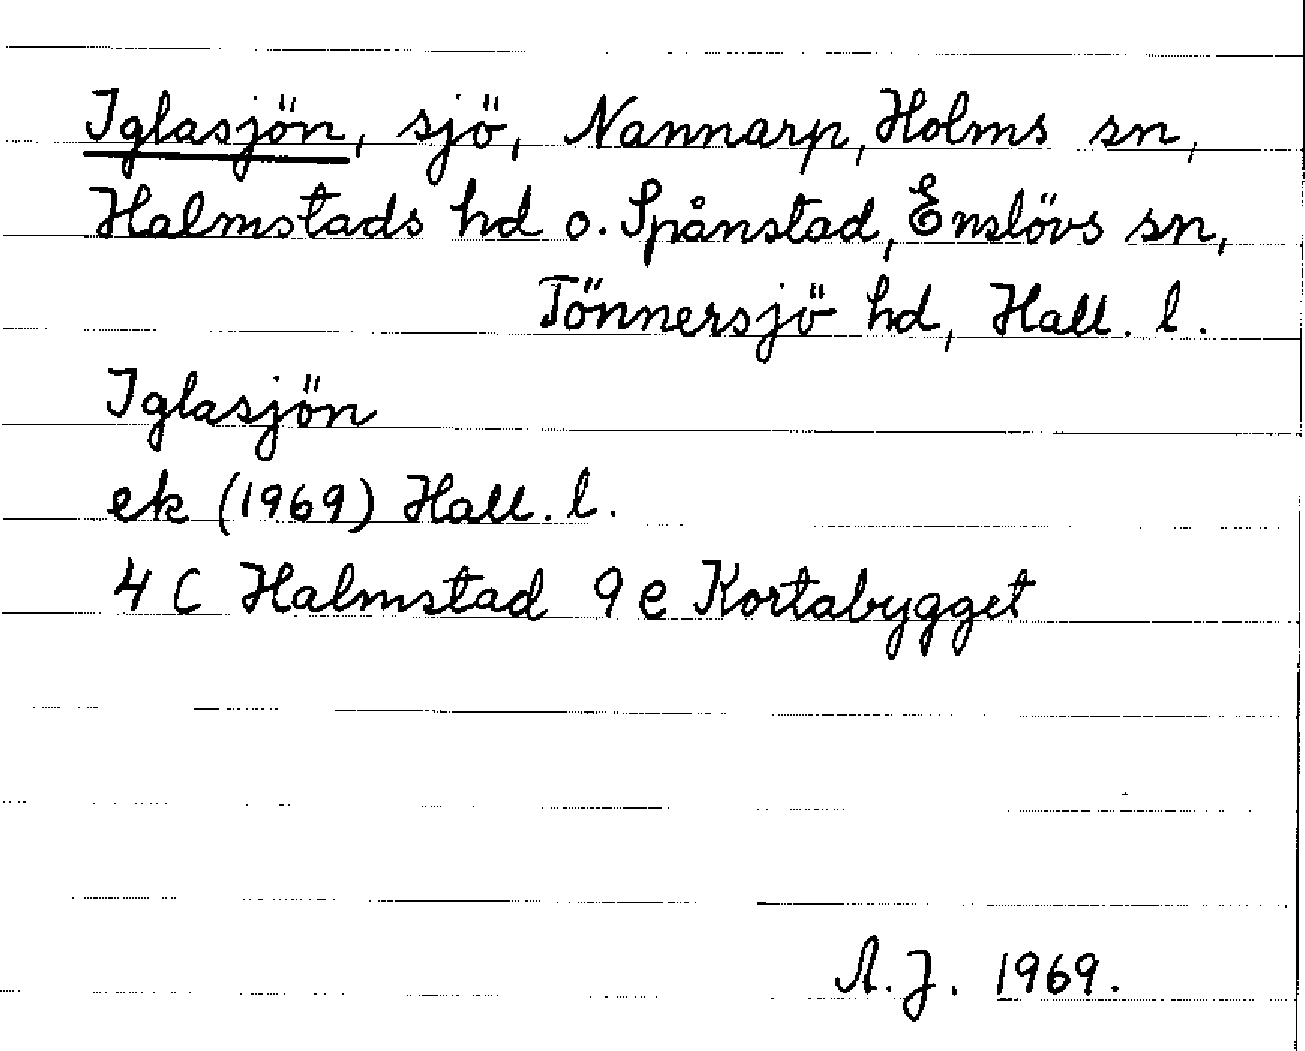 Iglasjön, sjö, Nannarp, Holms sn,
Halmstads hd o. Spånstad, Enslövs sn,
Tönnersjö hd, Hall. l.
Iglasjön
ek (1969) Hall. l.
4 C Halmstad 9 e Kortabygget
A.J. 1969.